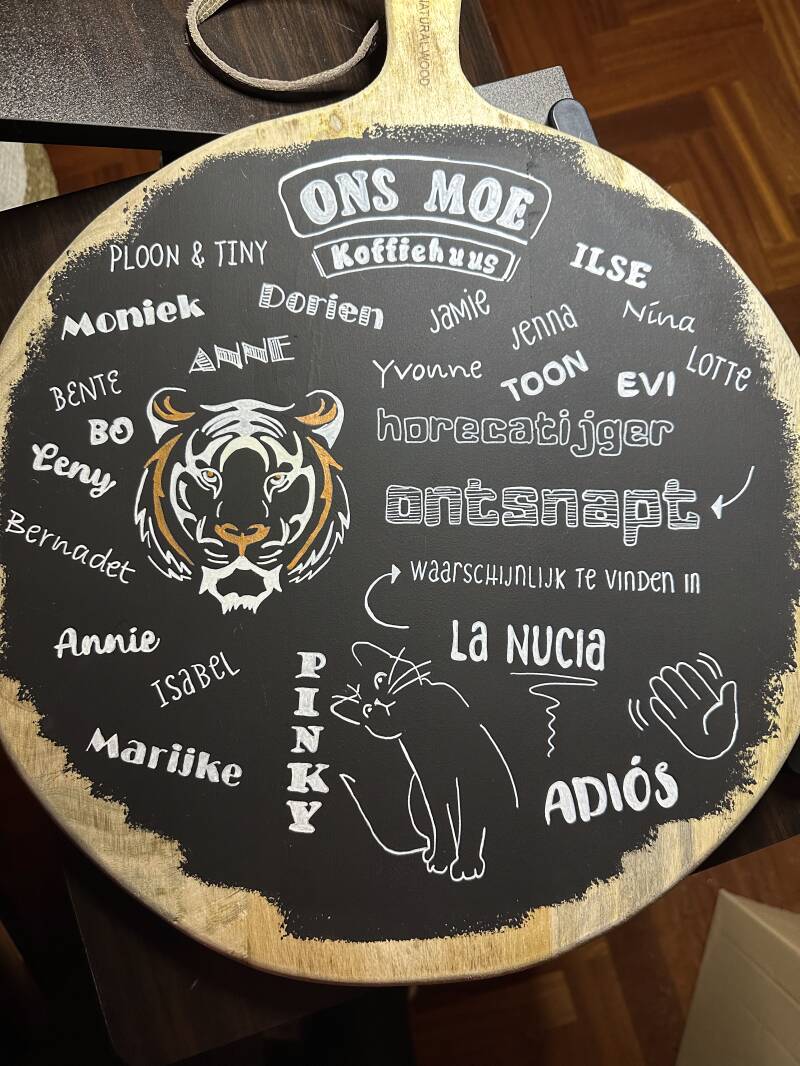 NATURAL WOOD
ONS MOE
Koffiehuus
PLOON & TINY
ILSE
Moniek
Dorien
Jamie
Jenna
Nina
ANNE
Yvonne
TOON
EVI
LOTTE
BENTE
BO
Leny
horecatijger
ontsnapt
Bernadet
waarschijnlijk te vinden in
La Nucia
Annie
Isabel
PINKY
Marijke
ADIÓS